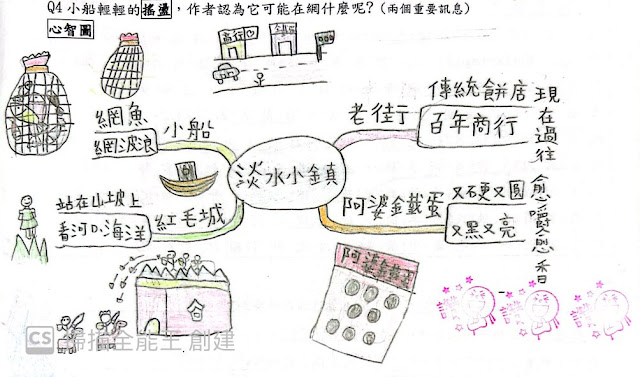 Q4 小船輕輕的搖盪，作者認為它可能在網什麼呢?(兩個重要訊息)
心智圖
商行
網魚
網波浪
小船
淡水小鎮
老街
傳統餅店
百年商行
現在過往
站在山坡上
看河口、海洋
紅毛城
阿婆鐵蛋
又硬又圓
又黑又亮
愈嚼愈香
阿婆鐵蛋
CS 掃描全能王 創建